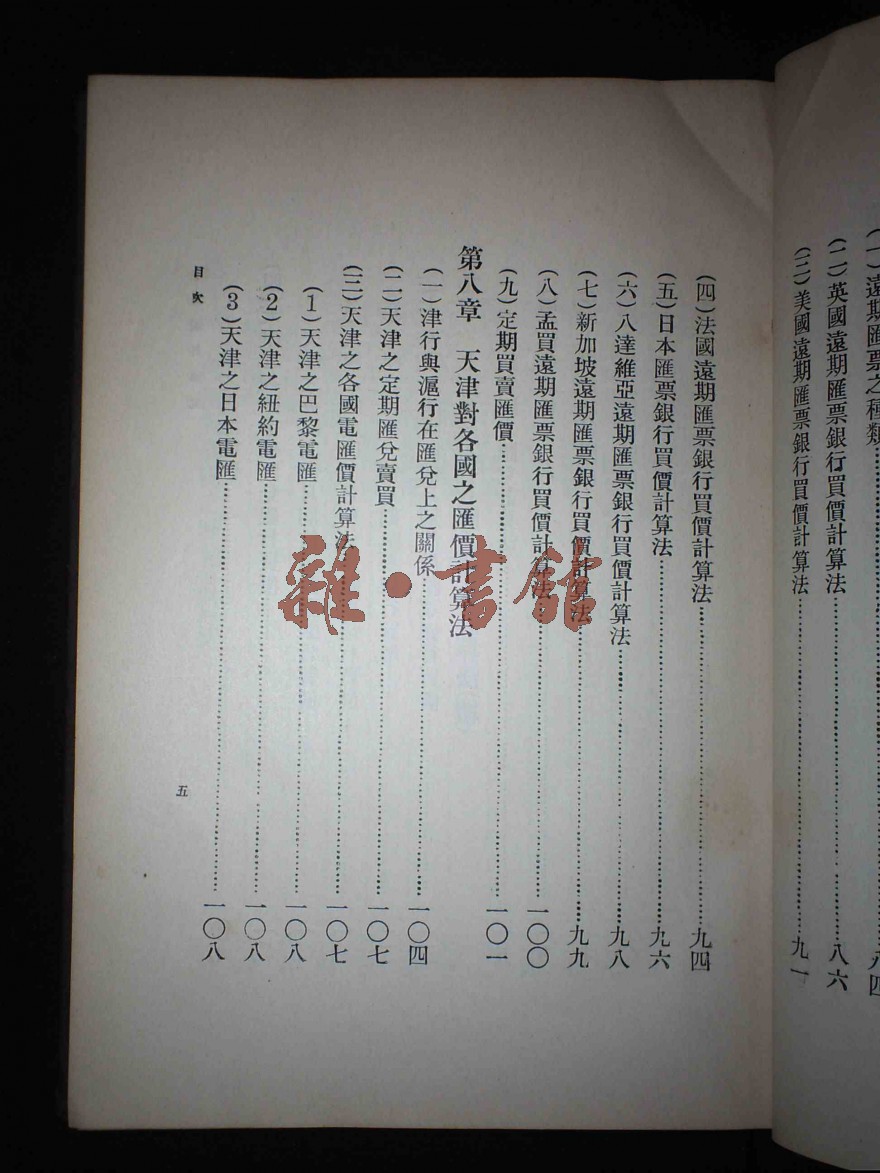 (一)遠期匯票之種類……八四
(二)英國遠期匯票銀行買價計算法……八六
(三)美國遠期匯票銀行買價計算法……九一
(四)法國遠期匯票銀行買價計算法……九四
(五)日本匯票銀行買價計算法……九六
(六)八達維亞遠期匯票銀行買價計算法……九八
(七)新加坡遠期匯票銀行買價計算法……九九
(八)孟買遠期匯票銀行買價計算法……一〇〇
(九)定期買賣匯價……一〇一
第八章 天津對各國之匯價計算法
(一)津行與滬行在匯兌上之關係……一〇四
(二)天津之定期匯兌賣買……一〇七
(三)天津之各國電匯價計算法……一〇七
(1)天津之巴黎電匯……一〇八
(2)天津之紐約電匯……一〇八
(3)天津之日本電匯……一〇八
目次
五
雜·書館